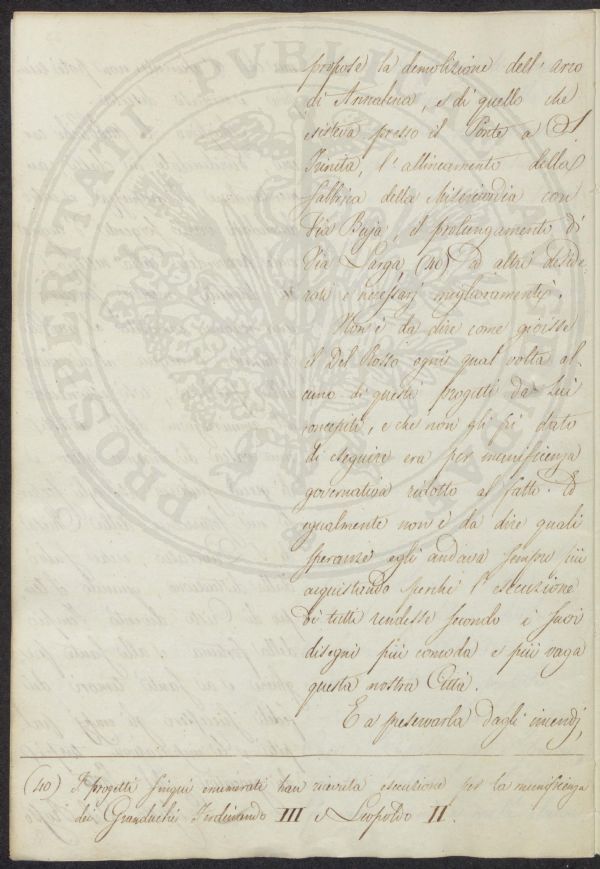 propose la demolizione dell'arco
di Annalena, e di quello che
esisteva presso il Ponte a S.
Trinita, l'allineamento della
fabbrica della Misericordia con
Via Buja, il prolungamento di
Via Larga, (40) ed altri deside-
rati e necessarj miglioramenti.
Non è da dire come gioisse
il Del Rosso ogni qual volta al-
cuno di questi progetti da Lui
concepiti, e che non gli fu dato
di eseguire era per munificenza
governativa ridotto al fatto. Ed
egualmente non è da dire quali
speranze egli andava sempre più
acquistando perchè l'esecuzione
di tutti rendesse secondo i suoi
disegni più comoda e più vaga
questa nostra Città.
E a preservarla dagli incendj,
(40) I progetti finqui enumerati han ricevuta esecuzione per la munificenza
dei Granduchi Ferdinando III e Leopoldo II.
PROSPERITATI PVBLICAE